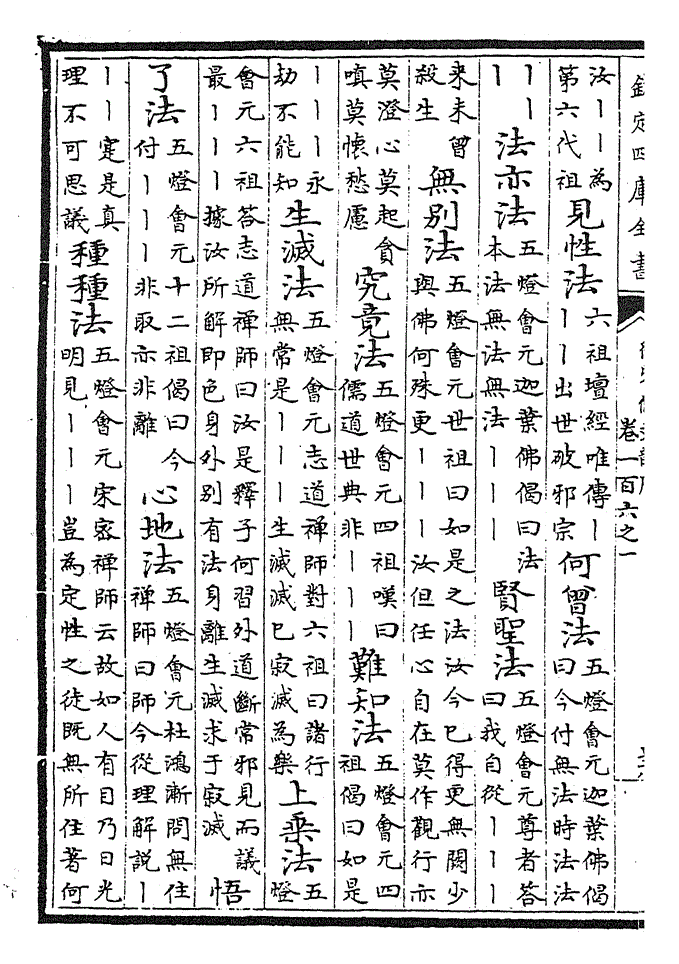 欽定四庫全書 卷一百六之一
汝丨丨為第六代祖見性法六祖壇經唯傳丨丨丨出世破邪宗何曾法五燈會元迦葉佛偈曰今付無法時法法
丨丨丨法亦法五燈會元迦葉佛偈曰法本法無法無法丨丨丨賢聖法五燈會元尊者荅曰我自從丨丨丨
来未曾殺生無別法五燈會元世祖曰如是之法汝今已得更無闕少與佛何殊更丨丨丨汝但任心自在莫作觀行亦
莫澄心莫起貪嗔莫懷愁慮究竟法五燈會元四祖嘆曰儒道世典非丨丨丨難知法五燈會元四祖偈曰如是
丨丨丨永劫不能知生滅法五燈會元志道禪師對六祖曰諸行無常是丨丨丨生滅滅已寂滅為樂上乗法五燈
會元六祖荅志道禪師曰汝是釋子何習外道斷常邪見而議最丨丨丨據汝所解即色身外別有法身離生滅求于寂滅悟
了法五燈會元十二祖偈曰今付丨丨丨非取亦非離心地法五燈會元杜鴻漸問無住禪師曰師今從理解說丨
丨丨寔是真理不可思議種種法五燈會元宋密禪師云故如人有目乃日光明見丨丨丨豈為定性之徒既無所住著何